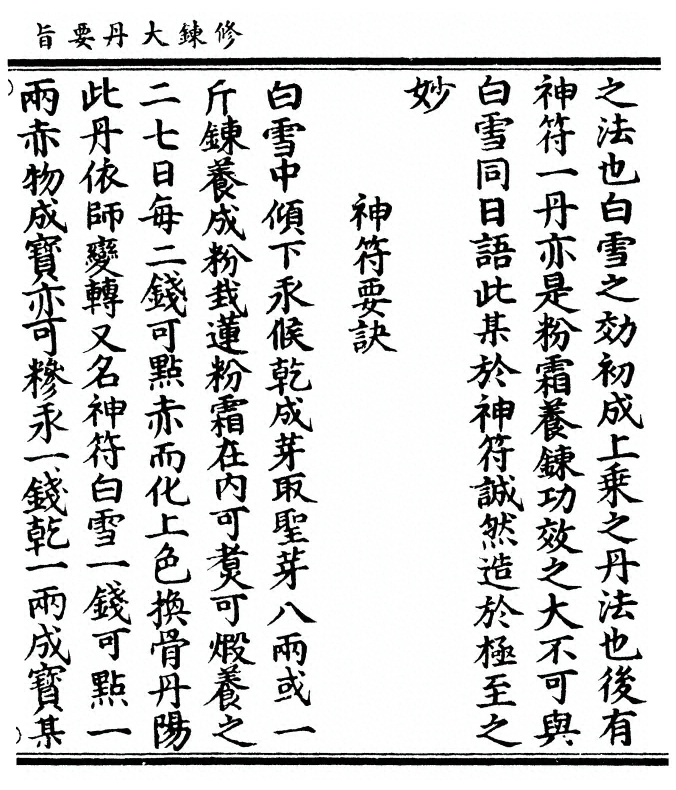 修鍊大丹要旨
之法也白雪之効初成上乗之丹法也後有
神符一丹亦是粉霜養鍊功效之大不可與
白雪同日語此某於神符誠然造於極至之
妙
神符要訣
白雪中傾下汞候乾成芽取聖芽八兩或一
斤鍊養成粉栽蓮粉霜在内可煑可煅養之
二七日每二錢可點赤而化上色換骨丹陽
此丹依師變轉又名神符白雪一錢可點一
兩赤物成寶亦可糝汞一錢乾一兩成寶某